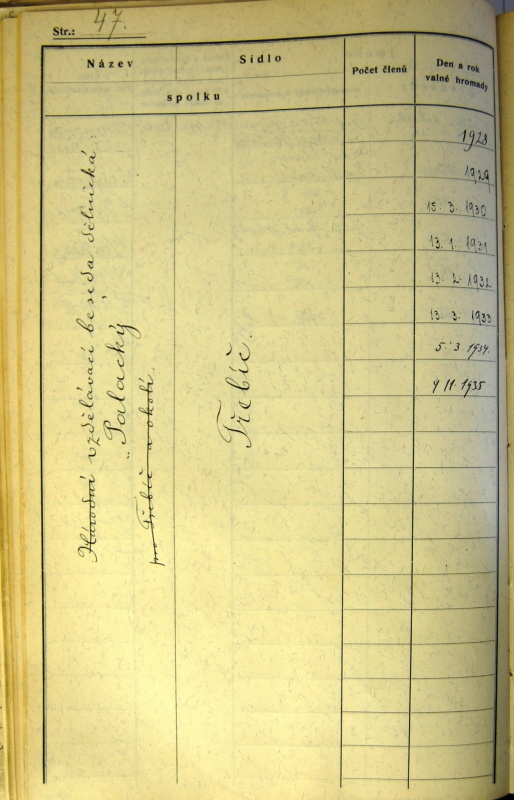 Str.: 47.
Název
Sídlo
spolku
Počet členů
Den a rok
valné hromady
Národní vzdělávací beseda dělnická
"Palacký"
pro Třebíč a okolí.
Třebíč.
1928
1929
15. 3. 1930
13. 1. 1931
13. 2. 1932
13. 3. 1933
5. 3. 1934.
1935